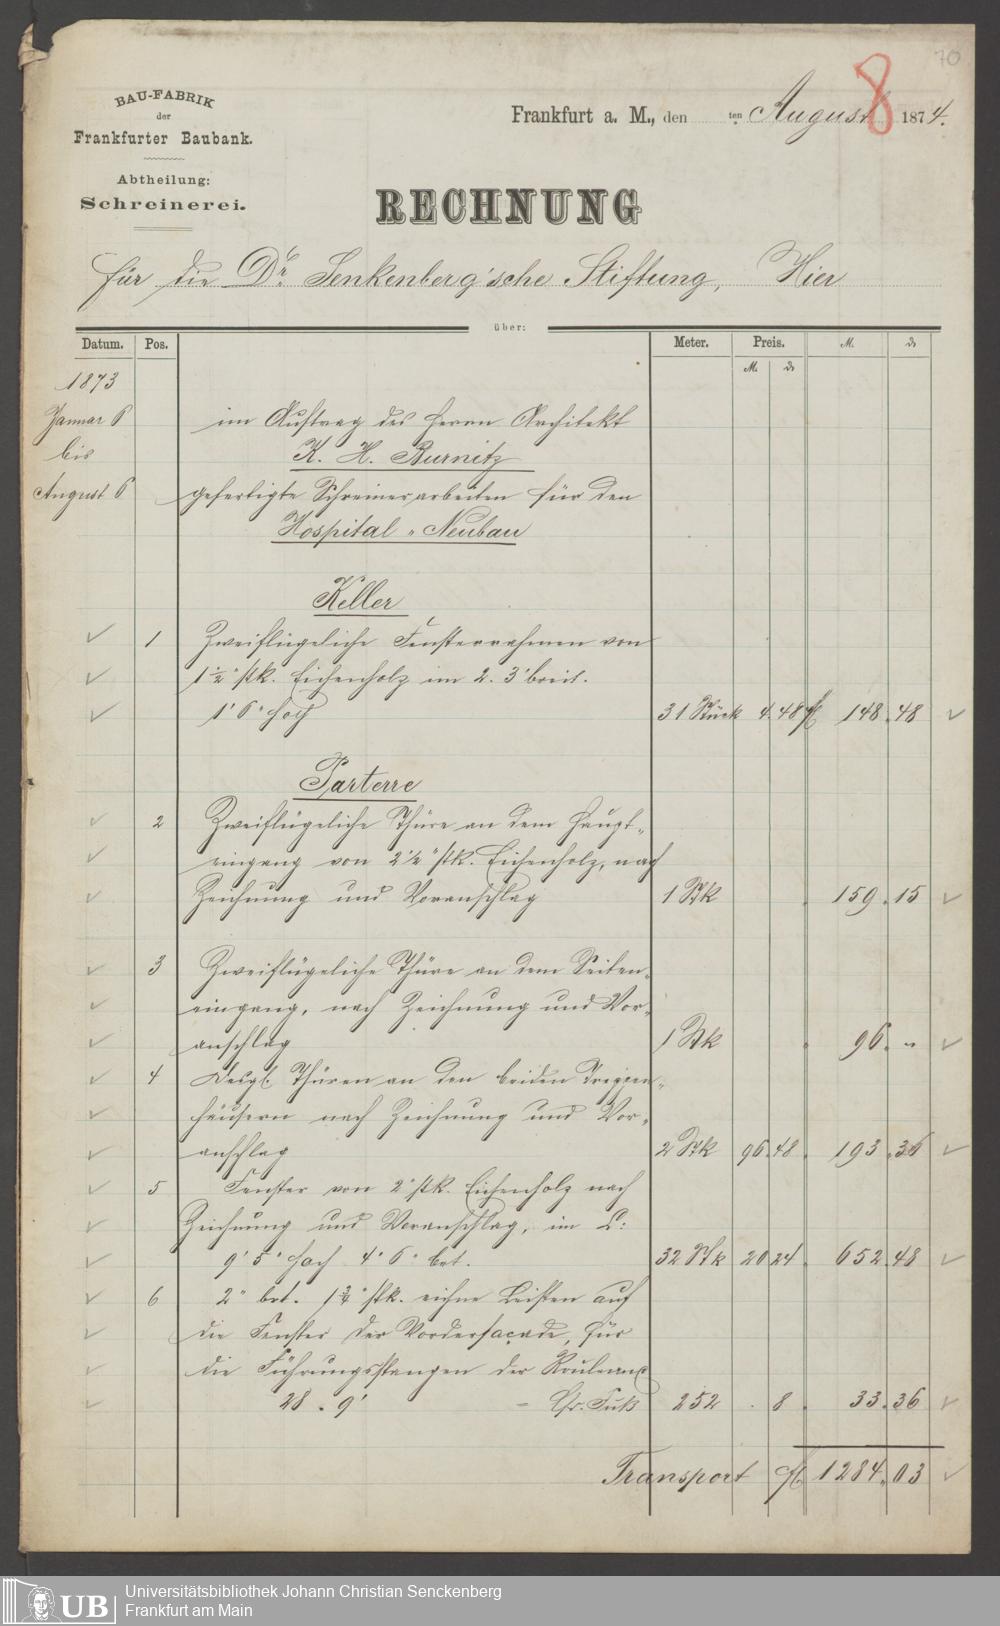 70
BAU-FABRIK
der
Frankfurter Baubank.
Abtheilung:
Schreinerei.
Frankfurt a. M., den ten August 1874.
8
RECHNUNG
für die Dr. Senkenberg'sche Stiftung, Hier
über:
Datum. Pos. Meter. Preis. M. S
M. S
1873
Januar 6 im Auftrag des Herrn Architekt
bis K. H. Burnitz
August 6 gefertigte Schreinerarbeiten für den
Hospital-Neubau
Keller
1 Zweiflügeliche Fensterrahmen von
1½" stk. Eichenholz im L. 3' breit.
1' 6" hoch 31 Stück 4. 48 fl 148. 48
Parterre
2 Zweiflügeliche Thüre an dem Haupt-
eingang von 2½" stk. Eichenholz, nach
Zeichnung und Voranschlag 1 Stk 159. 15
3 Zweiflügeliche Thüre an dem Seiten-
eingang, nach Zeichnung und Vor-
anschlag 1 Stk 96. "
4 Desgl. Thüren an den beiden Treppen-
häusern nach Zeichnung und Vor-
anschlag 2 Stk 96. 48 193. 36
5 Fenster von 2" stk. Eichenholz nach
Zeichnung und Voranschlag, im L:
9' 5" hoch 4' 6" brt. 32 Stk 20 24 652. 48
6 2" brt. 1¾" stk. eichne Leisten auf
die Fenster der Vorderfaçade, für
die Führungsstangen der Rouleaux
28 . 9' = Cfr. Fuß 252 . 8 33. 36
Transport fl 1284. 03
UB
Universitätsbibliothek Johann Christian Senckenberg
Frankfurt am Main